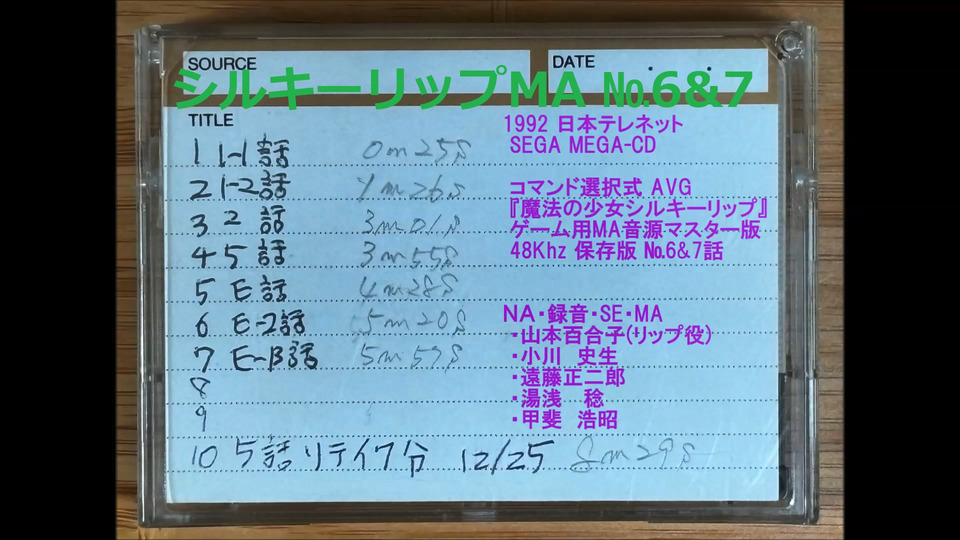 SOURCE
DATE
シルキーリップMA №6&7
TITLE
1992 日本テレネット
SEGA MEGA-CD
1 1-1話 0m25s
2 1-2話 1m26s
コマンド選択式 AVG
『魔法の少女シルキーリップ』
3 2 話 3m01s
ゲーム用MA音源マスター版
4 5 話 3m55s
48Khz 保存版 №6&7話
5 E 話 4m28s
NA・録音・SE・MA
6 E-2話 5m20s
・山本百合子(リップ役)
7 E-B話 5m57s
・小川 史生
・遠藤正二郎
8
・湯浅 稔
9
・甲斐 浩昭
10 5話リテイク分 12/25 8m29s